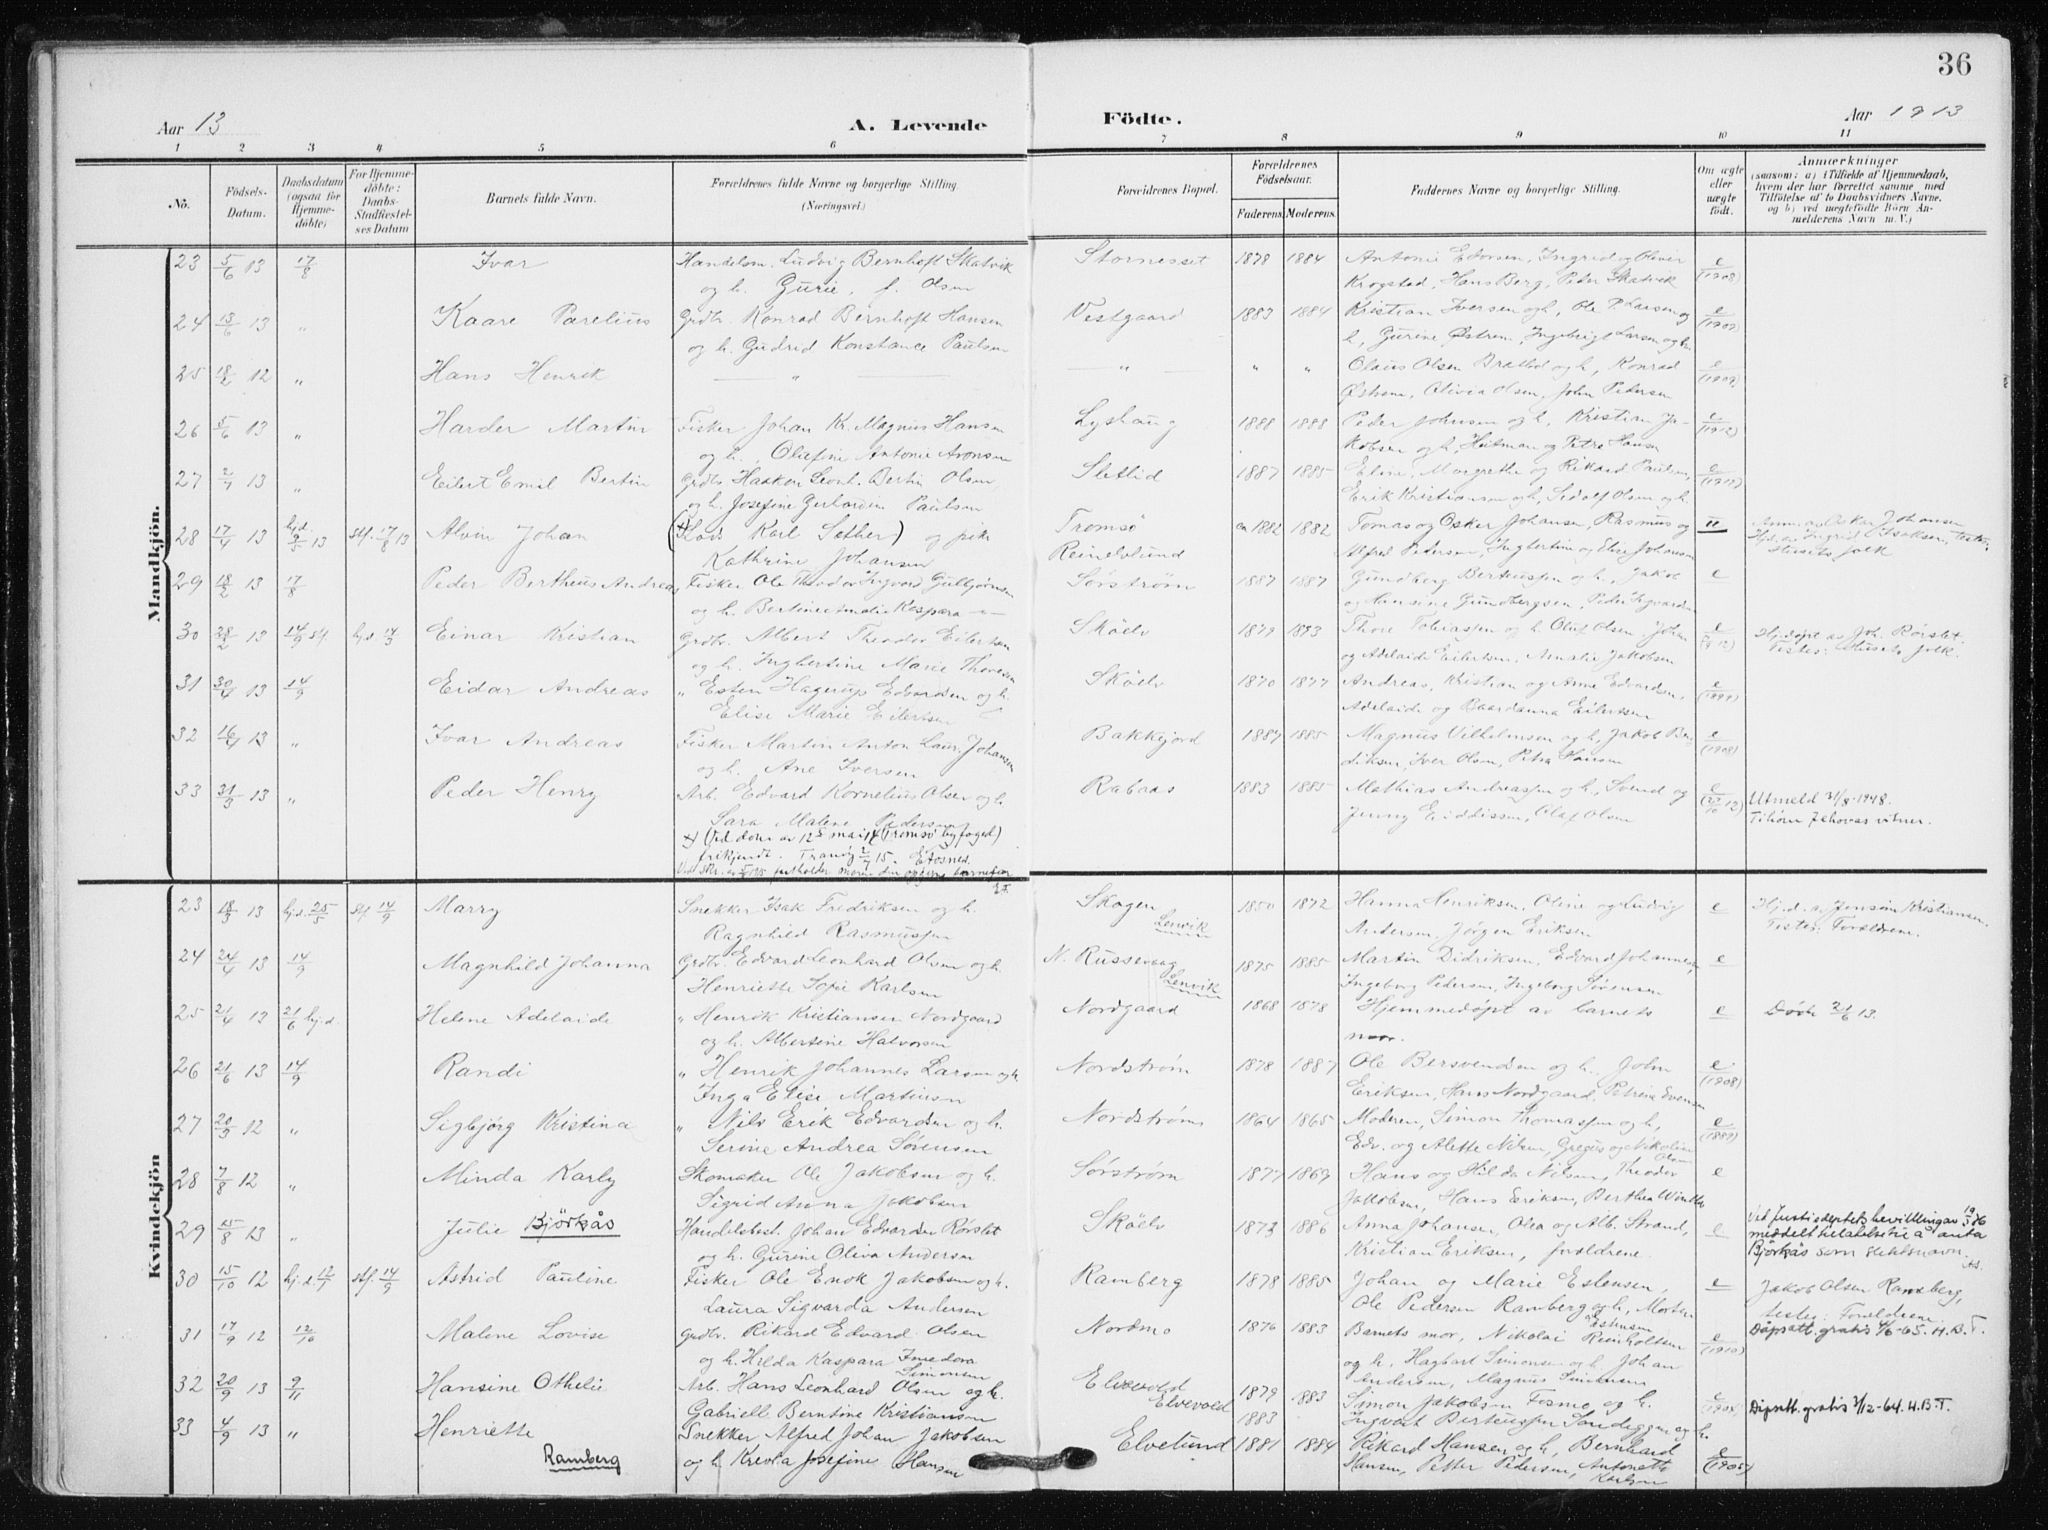 36
Aar 13
A. Levende
Födte.
Aar 1913
1 2 3 4 5 6 7 8 9 10 11
No.
Födsels-Datum.
Daabsdatum (ogsaa for Hjemmedöbte)
For Hjemmedöbte: Daabs-Stadfæstelses Datum
Barnets fulde Navn.
Forældrenes fulde Navne og borgerlige Stilling. (Næringsvei.)
Forældrenes Bopæl.
Forældrenes Födselsaar.
Faderens. Moderens.
Faddernes Navne og borgerlige Stilling.
Om ægte eller uægte födt.
Anmærkninger
(saasom: a) i Tilfælde af Hjemmedaab, hvem der har forrettet samme, med Tilföielse af to Daabsvidners Navne, og b) ved uægtefödte Börn Anmelderens Navn m. V.)
Mandkjön.
23 5/6 13 17/8 Ivar Handelsm. Ludvig Bernhoft Skatvik Stornesset 1878 1884 Antonie Edorsen, Ingrid og Oliver e
og h. Gurie, f. Olsen Krogstad, Hans Berg, Peder Skatvik (1908)
24 13/6 13 " Kaare Parelius Grdbr. Konrad Bernhoft Hansen Vestgaard 1883 1884 Kristian Iversen og h, Ole P. Larsen og e
og h. Gudrid Konstance Paulsen h, Gurine Østrem, Ingebrigt Larsen og h (1909)
25 18/2 12 " Hans Henrik — " — — " — " " Olaus Olsen Bratlid og h, Konrad e
Østrem, Olivia Olsen, John Pedersen (1909)
26 5/6 13 " Harder Martin Fisker Johan Kr. Magnus Hansen Lyshaug 1888 1888 Peder Johnsen og h, Kristian Ja- e
og h. Olufine Antonie Aronsen kobsen og h, Heitman og Petra Hansen (1912)
27 2/7 13 " Eilert Emil Bertin Grdbr. Haaken Leonh. Bertin Olsen Sletlid 1887 1885 Eline, Margrethe og Rikard Paulsen, e
og h. Josefine Gerhardine Paulsen Erik Kristiansen og h, Sedolf Olsen og h.
28 17/4 13 hj.d. 9/5 13 stf. 17/8 13 Alvin Johan Karl Sether) og pike Tromsø ca 1882 1882 Tomas og Osker Johansen, Rasmus og u
Kathrine Johansen Reinelvlund Alfred Pedersen, Inghertine og Elise Johansen
Anm. av Oskar Johansen
Hjd. av Ingrid Isaksen, Test:
Husets folk
29 18/2 13 17/8 Peder Bertheus Andreas Fisker Ole Theodor Ingvard Gulbjørnsen Sørstrøm 1887 1887 Gundberg Berteussen og h, Jakob e
og h. Bertine Amalie Kaspara og Hansine Gundbergsen, Peder Ingvardsen
30 28/2 13 14/9 stf. hj.d. 14/3 Einar Kristian Grdbr. Albert Theodor Eilertsen Sköelv 1879 1883 Thore Tobiassen og h. Oluf Olsen, Johan e
og h. Inghertine Marie Thoresen og Adelaide Eilertsen, Amalie Jakobsen
Hj.döpt av Joh. Rörslet
Testes: Husets folk.
31 30/4 13 14/9 Eidar Andreas " Esten Hagerup Edvardsen og h. Sköelv 1870 1877 Andreas, Kristian og Anne Edvardsen, e
Elise Marie Eilertsen Adelaide og Baardanna Eilertsen (1899)
32 16/4 13 " Ivar Andreas Fisker Martin Anton Laur. Johansen Bakkejord 1887 1885 Magnus Vilhelmsen og h, Jakob Ben- e
og h. Ane Iversen diksen, Iver Olsen, Petra Hansen (1908)
33 31/3 13 " Peder Henry Arb. Edvard Kornelius Olsen og h. Rabaas 1883 1885 Mathias Andreassen og h, Svend og e
Sara Malene Pedersen Jenny Eriddissen, Olaf Olsen
Utmeld 31/8-1948.
Tilhører Jehovas vitner.
x) (Ved dom av 12te mai 14 (Tromsø byfoged)
frikjendt. Tranöy 2/7 15. E Fosnes.
E.F.
Kvindekjön
23 18/3 13 hj.d. 25/5 stf. 14/9 Marry Snekker Isak Fredriksen og h. Skogen 1850 1872 Hanna Henriksen, Oline og Ludvig e
Ragnhild Rasmussen Lenvik Andersen, Jörgen Eriksen
Hj.d. av Jensine Kristiansen
Testes: Forældrene.
24 24/4 13 14/9 Magnhild Johanna Grdbr. Edvard Leonhard Olsen og h. N. Russevaag 1875 1885 Martin Didriksen, Edvard Johannesen, e
Henriette Sofie Karlsen Lenvik Ingeborg Pedersen, Ingeborg Sørensen
25 21/4 13 21/6 hj.d. Helene Adelaide " Henrik Kristiansen Nordgaard Nordgaard 1868 1878 Hjemmedöpt av barnets e Död 21/6 13.
og h. Albertine Halvorsen mor.
26 21/6 13 14/9 Randi " Henrik Johannes Larsen og h. Nordstrøm 1878 1887 Ole Bersvendsen og h, John e
Inga Elise Martinsen Eriksen, Hans Nordgaard, Petrine Svensen (1908)
27 20/9 12 " Sigbjørg Kristina " Nils Erik Edvardsen og h. Nordstrøm 1864 1865 Moderen, Simon Thomassen og h, e
Serine Andrea Sørensen Edv. og Alette Nilsen, Gregus og Nikoline Olsen (1889)
28 7/8 12 " Minda Karly Skomaker Ole Jakobsen og h. Sørstrøm 1877 1869 Hans og Hilda Nilsen, Theodor e
Sigrid Anna Jakobsen Jakobsen, Hans Eriksen, Berthea Winther
29 15/8 13 " Julie Björkås Handelsbest. Johan Edvardsen Rørslet Sköelv 1873 1886 Anna Johansen, Olea og Alb. Strand, e
og h. Gurine Oliva Andersen Kristian Eriksen, forældrene.
Ved Justisdeptets bevilling av
meddelt tilatelse til å anta
Björkås som slektsnavn.
30 15/10 12 hj.d. 12/1 stf. 14/9 Astrid Pauline Fisker Ole Enok Jakobsen og h. Ramberg 1878 1885 Johan og Marie Estensen, e
Laura Sigvarda Andersen Ole Pedersen Ramberg og h, Morten Estensen
Jakob Olsen Ramberg,
testes: Forældrene
31 17/9 12 12/10 Malene Lovise Grdbr. Rikard Edvard Olsen Nordmo 1876 1883 Barnets mor, Nikolai Reinholtsen e
og h. Hilda Kaspara Imedora Simonsen og h, Hagbart Simonsen og h, Johan (1910)
Andersen, Magnus Simonsen
Dåpsatt. gratis 4/6-65. H.B.T.
32 20/9 13 9/11 Hansine Othelie Arb. Hans Leonhard Olsen og h. Elvevold 1879 1883 Simon Jakobsen Fosmo og h. e
Gabriell Berntine Kristiansen Elvevold 1883 Ingvart Berteussen Sandeggen og h.
Dåpsatt. gratis 2/12-64. H.B.T.
33 4/9 13 " Henriette Snekker Alfred Johan Jakobsen Elvelund 1881 1884 Rikard Hansen og h, Bernhard e
Ramberg og h. Krevla Josefine Hansen Hansen, Petter Pedersen, Antonette Karlsen